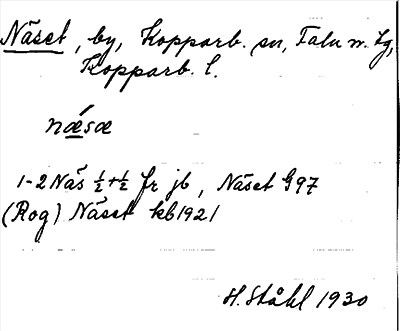 Näset, by, Kopparb. sn, Falu n. tg,
Kopparb. l.
næ´sæ
1-2 Näs ½+½ fr jb, Näset G97
(Rog) Näset kb1921
H. Ståhl 1930